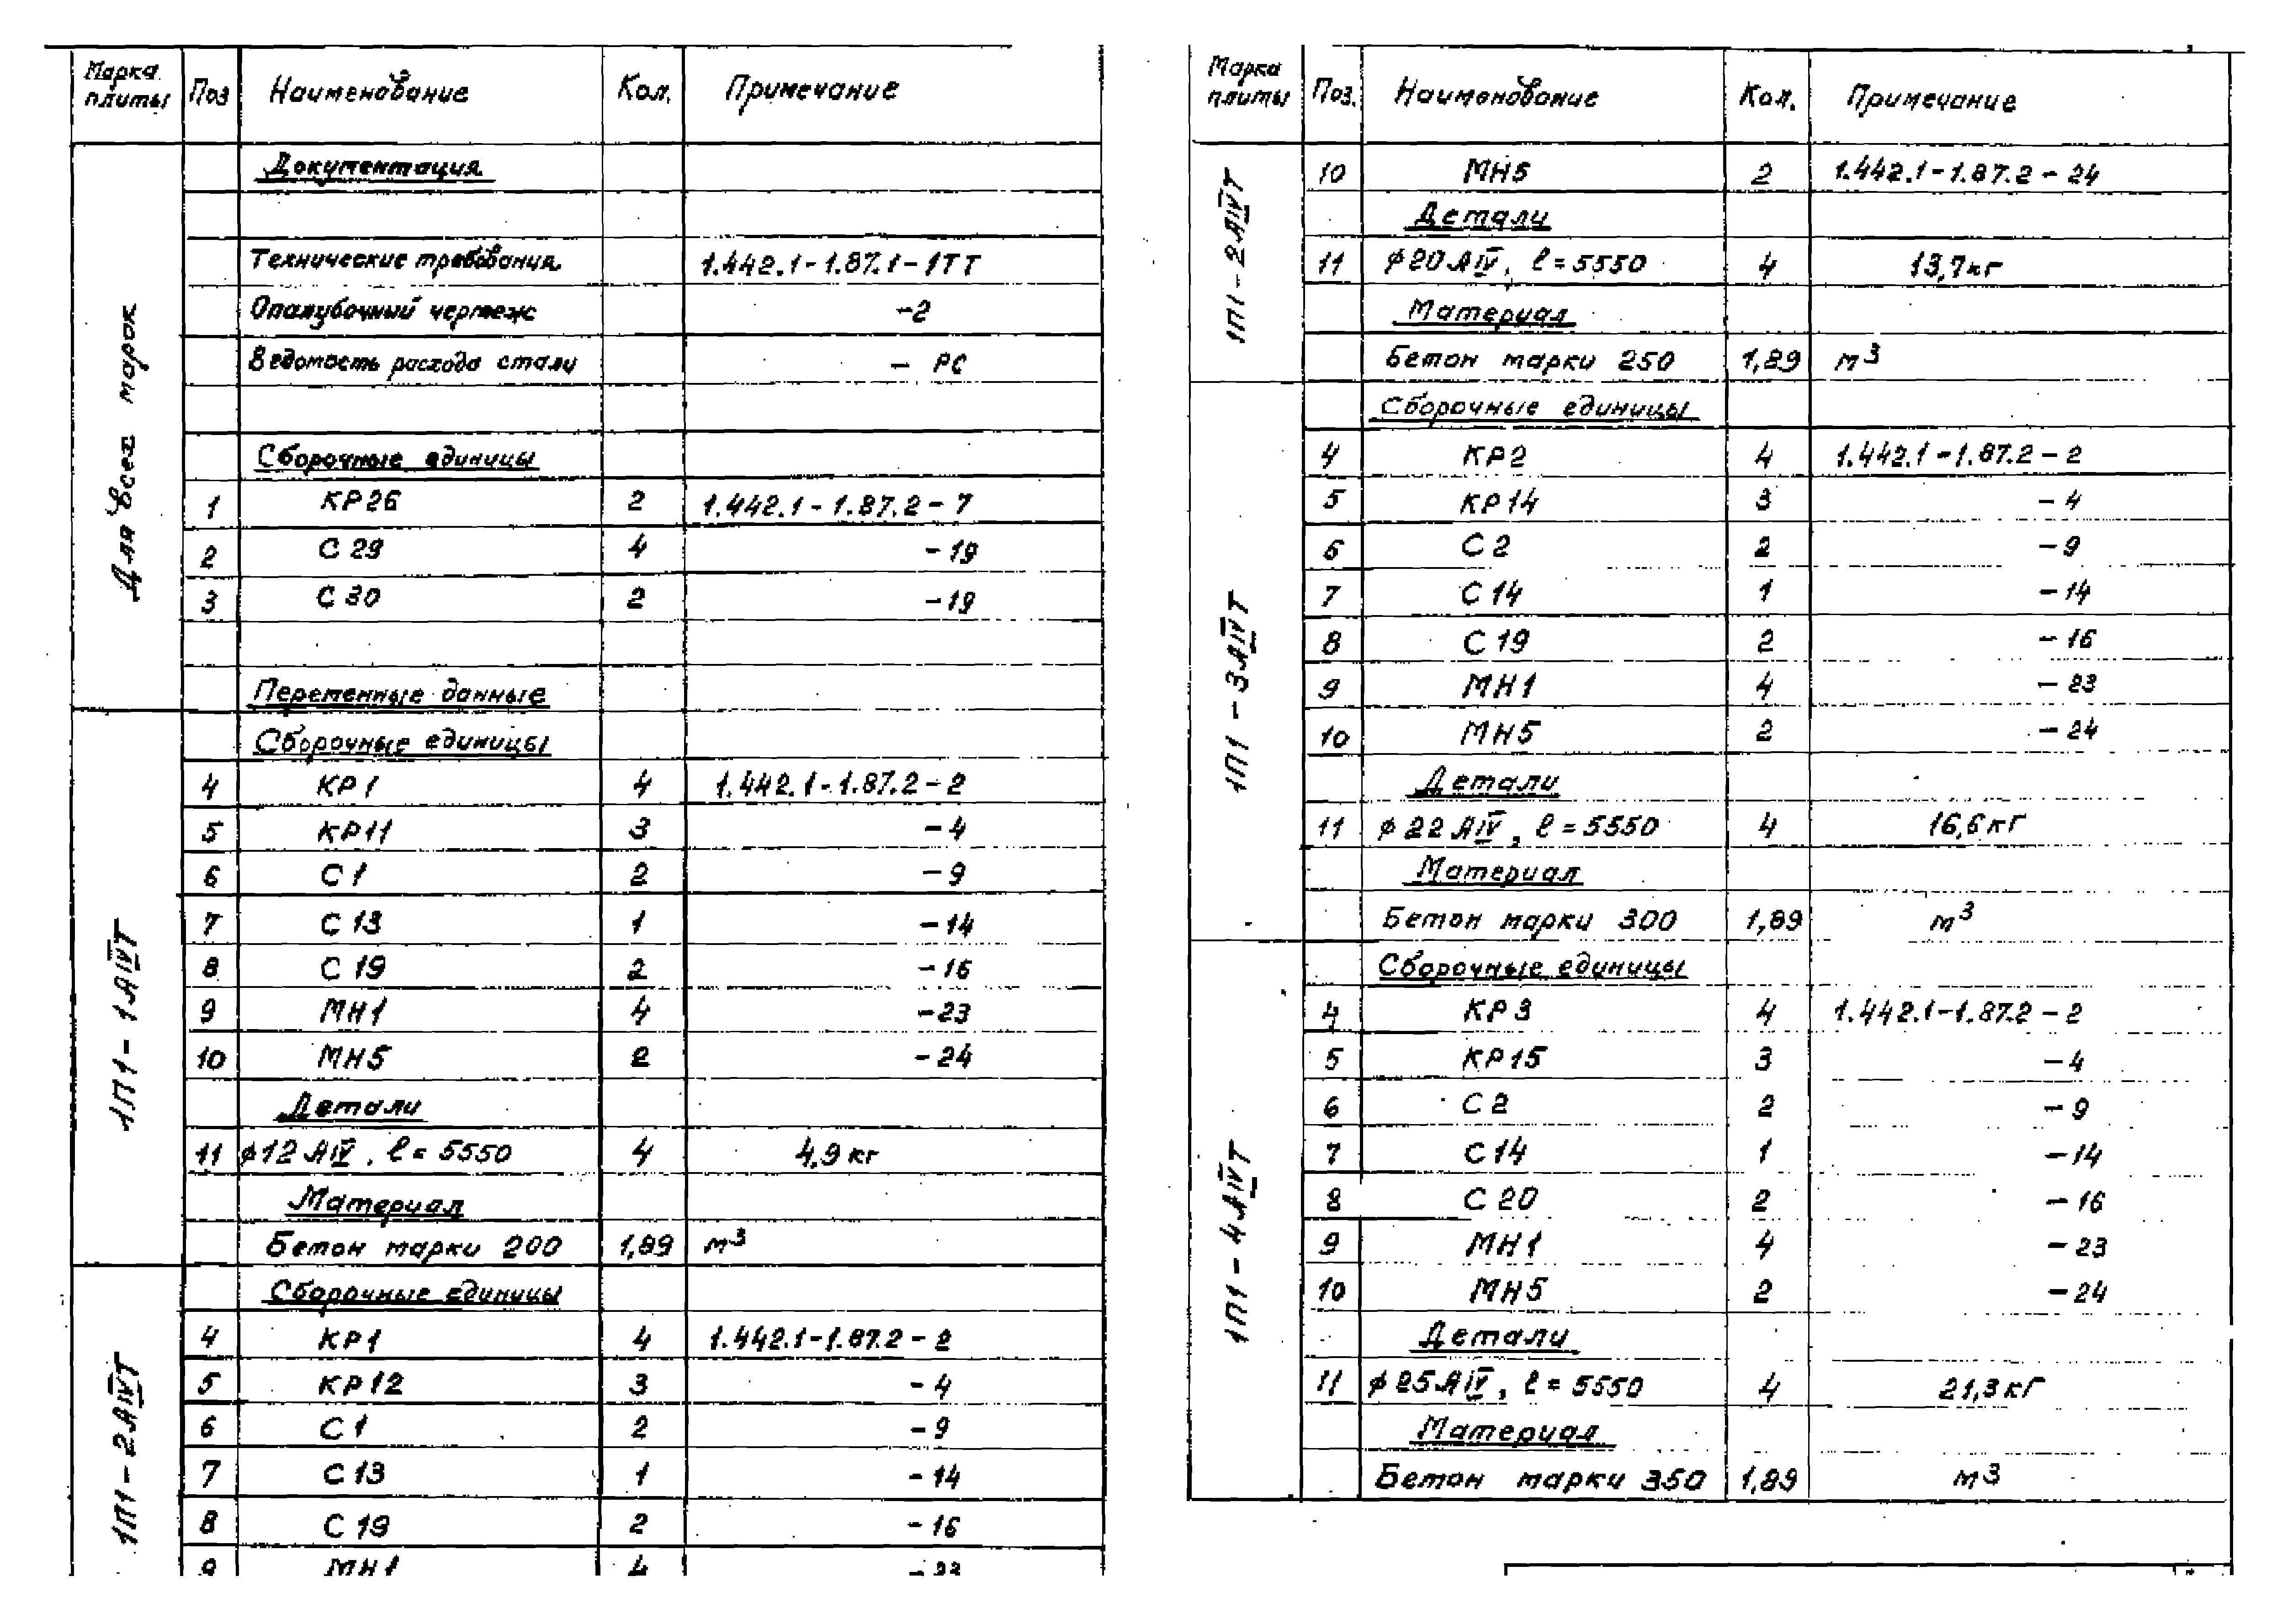 Марка плиты Поз Наименование Кол. Примечание
Для всех марок
Документация
Технические требования 1.442.1-1.87.1-1ТТ
Опалубочный чертеж -2
Ведомость расхода стали - РС
Сборочные единицы
1 КР26 2 1.442.1-1.87.2-7
2 С 29 4 -19
3 С 30 2 -19
Переменные данные
1П1-1АIVТ
Сборочные единицы
4 КР1 4 1.442.1-1.87.2-2
5 КР11 3 -4
6 С 1 2 -9
7 С 13 1 -14
8 С 19 2 -16
9 МН1 4 -23
10 МН5 2 -24
Детали
11 ф12 АIV, ℓ=5550 4 4,9 кг
Материал
Бетон марки 200 1,89 м³
1П1-2АIVТ
Сборочные единицы
4 КР1 4 1.442.1-1.87.2-2
5 КР12 3 -4
6 С 1 2 -9
7 С 13 1 -14
8 С 19 2 -16
9 МН1 4 -23
Марка плиты Поз. Наименование Кол. Примечание
1П1-2АIVТ
10 МН5 2 1.442.1-1.87.2-24
Детали
11 ф20 АIV, ℓ=5550 4 13,7 кг
Материал
Бетон марки 250 1,89 м³
1П1-3АIVТ
Сборочные единицы
4 КР2 4 1.442.1-1.87.2-2
5 КР14 3 -4
6 С 2 2 -9
7 С 14 1 -14
8 С 19 2 -16
9 МН1 4 -23
10 МН5 2 -24
Детали
11 ф22 АIV, ℓ=5550 4 16,6 кг
Материал
Бетон марки 300 1,89 м³
1П1-4АIVТ
Сборочные единицы
4 КР3 4 1.442.1-1.87.2-2
5 КР15 3 -4
6 С 2 2 -9
7 С 14 1 -14
8 С 20 2 -16
9 МН1 4 -23
10 МН5 2 -24
Детали
11 ф25 АIV, ℓ=5550 4 21,3 кг
Материал
Бетон марки 350 1,89 м³